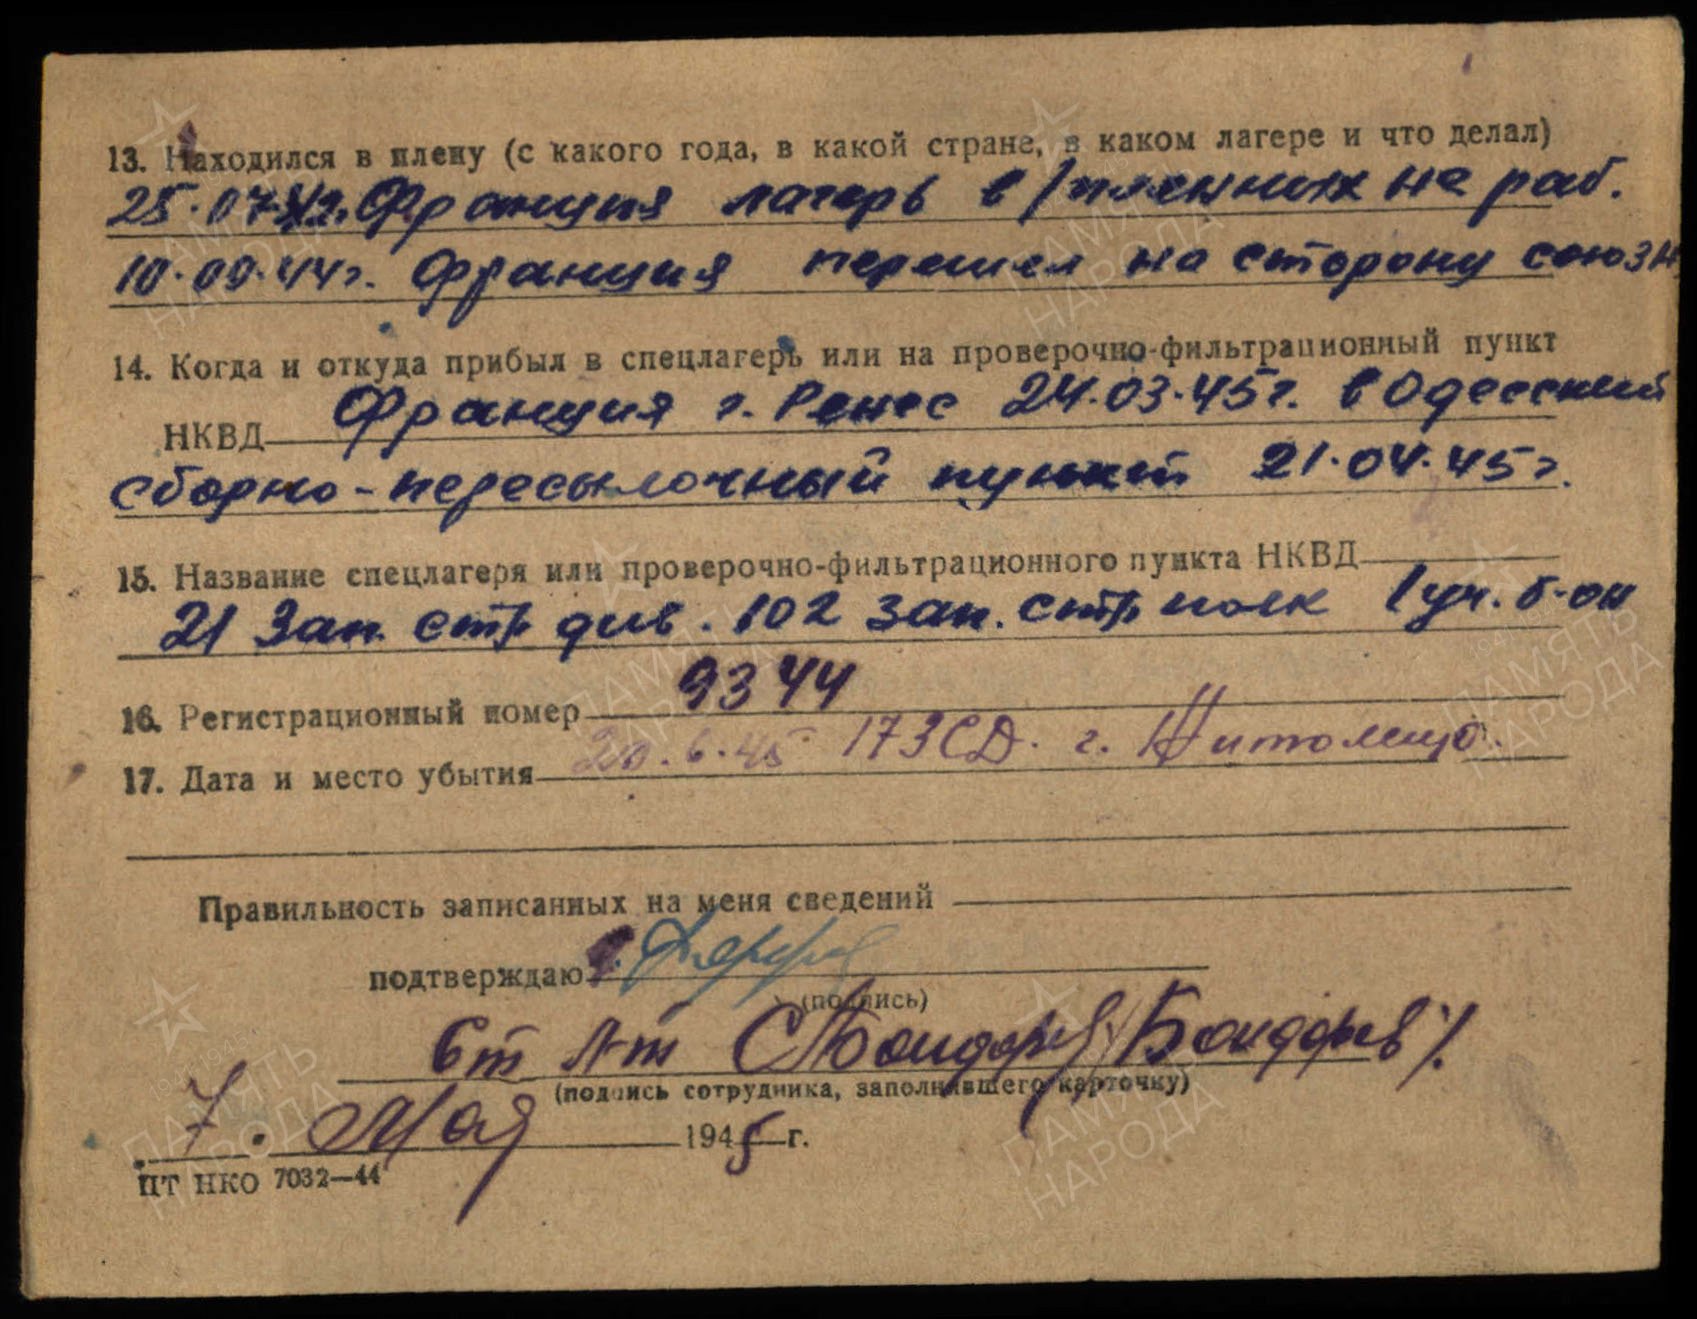 13. Находился в плену (с какого года, в какой стране, в каком лагере и что делал)
25.07.42г. Франция лагерь в/пленных на раб.
10.09.44г. Франция перешел на сторону союзн
14. Когда и откуда прибыл в спецлагерь или на проверочно-фильтрационный пункт
НКВД Франция г. Ренес 24.03.45г. в Одесский
сборно-пересылочный пункт 21.04.45г.
15. Название спецлагеря или проверочно-фильтрационного пункта НКВД
21 Зап. стр. див. 102 зап. стр. полк 1 уч. б-он
16. Регистрационный номер 9344
17. Дата и место убытия 20.6.45 173СД. г.
Правильность записанных на меня сведений
подтверждаю
(подпись)
Ст л-т Бондарев
(подпись сотрудника, заполнявшего карточку)
7. Мая 1945 г.
ЦТ НКО 7032—44
ПАМЯТЬ НАРОДА
1941 1945